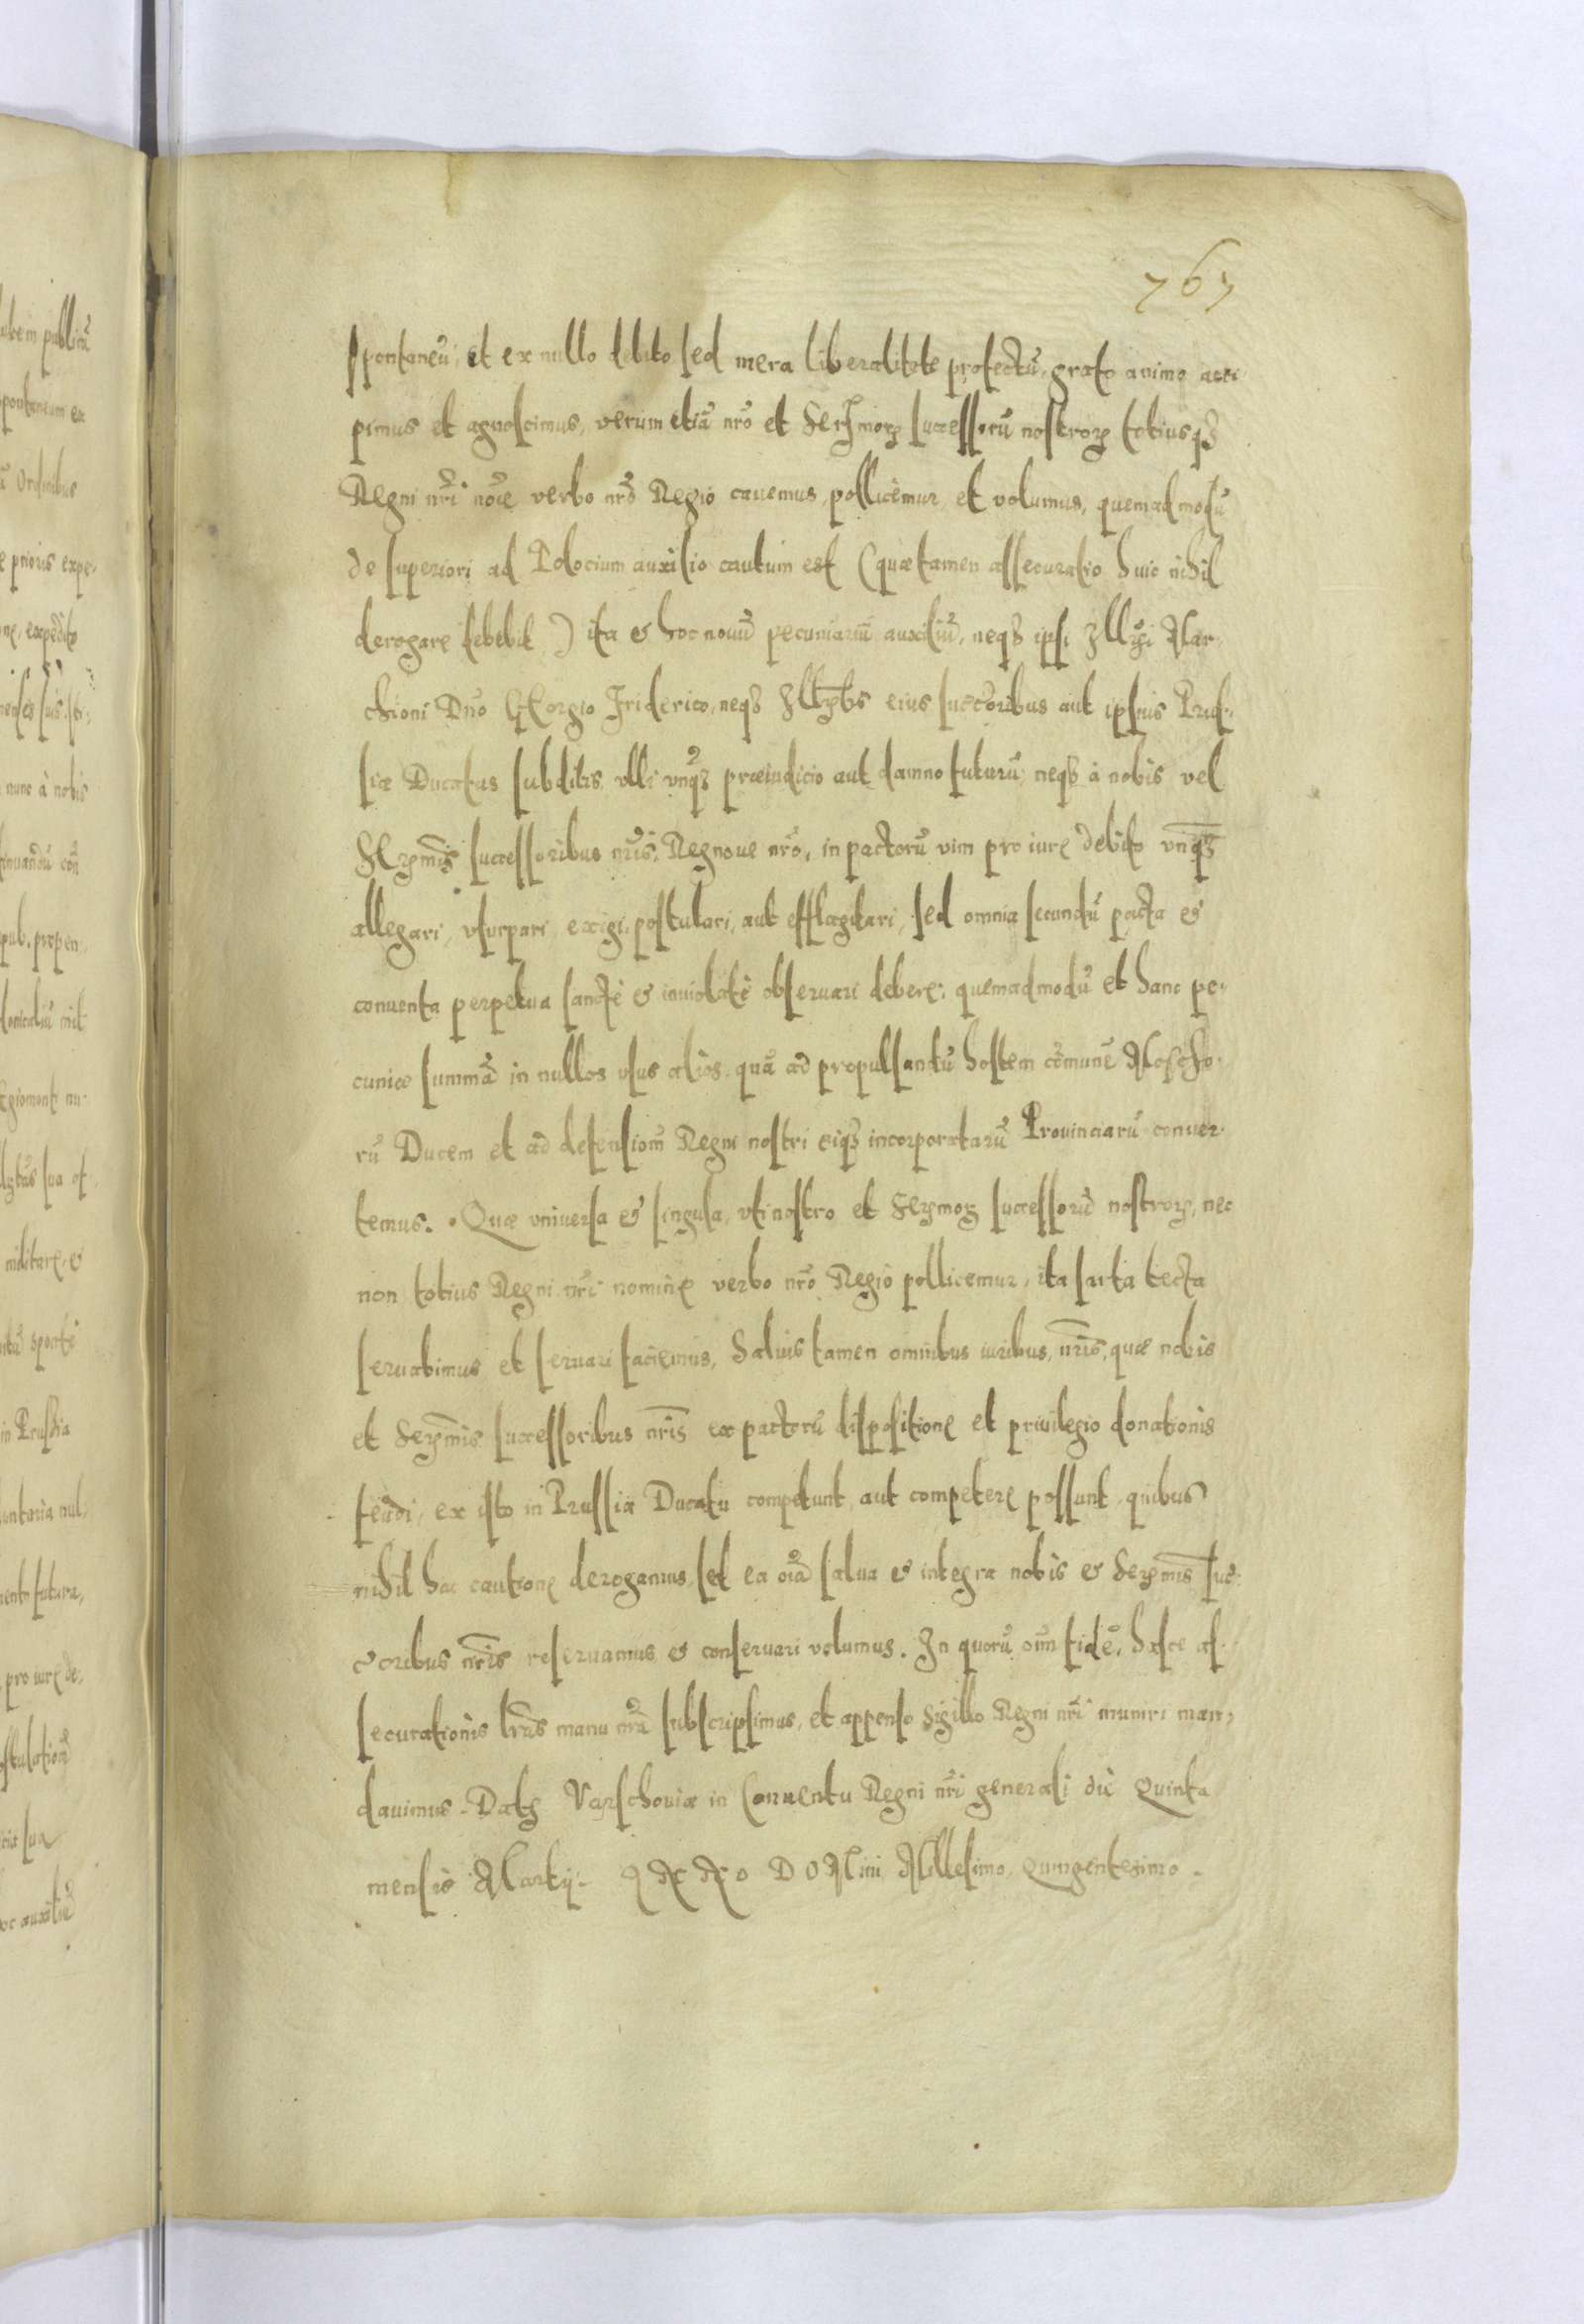 767
spontaneũ, et ex nullo debito sed mera liberalitate profectũ, grato animo acci-
pimus et agnoscimus, verum etiã nrõ et Serͫmorꝝ successorũ nostrorꝝ totiusqꝫ
Regni nrĩ noĩe verbo nrõ Regio cauemus, pollicemur et volumus, quemadmodũ
de superiori ad Polocium auxilio cautum est (quæ tamen assecuratio huic nihil
derogare debebit) ita & hoc nouũ pecuniariũ auxiliũ, neqꝫ ipsi Illrĩ Mar-
chioni Dnõ GEorgio Friderico, neqꝫ Illrĩbs eius succ̃oribus aut ipsius Prus-
siæ Ducatus subditis vlli vnqꝫ̃ præiudicio aut damno futurũ, neqꝫ à nobis vel
SErẽmĩs successoribus nrĩs, Regnoue nrõ, in pactorũ vim pro iure debito vnqꝫ̃
allegari, vsurpari, exigi, postulari, aut efflagitari, sed omnia secundũ pacta &
conuenta perpetua sanctè & inuiolatè obseruari debere: quemadmodũ et hanc pe-
cuniæ summã in nullos vsus alios, quã ad propulsandũ hostem cõmunẽ Moscho-
rũ Ducem et ad defensionẽ Regni nostri eiqꝫ incorporatarũ Prouinciarũ conuer-
temus. Quæ vniuersa & singula, vti nostro et Serẽmorꝝ successorũ nostrorꝝ, nec
non totius Regni nrĩ nomine verbo nrõ Regio pollicemur, ita sarta tecta
seruabimus et seruari faciemus, Saluis tamen omnibus iuribus nrĩs, quæ nobis
et Serẽmis successoribus nrĩs ex pactorũ dispositione et priuilegio donationis
feudi, ex isto in Prussia Ducatu competunt, aut competere possunt, quibus
nihil hac cautione derogamus, sed ea oĩa salua & integra nobis & Serẽmis suc-
c̃oribus nrĩs reseruamus & conseruari volumus. In quorũ oĩm fidẽ, hasce as-
securationis lrãs manu nrã subscripsimus, et appenso sigillo Regni nrĩ muniri man-
dauimus. Datꝫ Varschouiæ in Conuentu Regni nrĩ generali die Quinta
mensis Martij. ANNO DOMini Millesimo Quingentesimo.